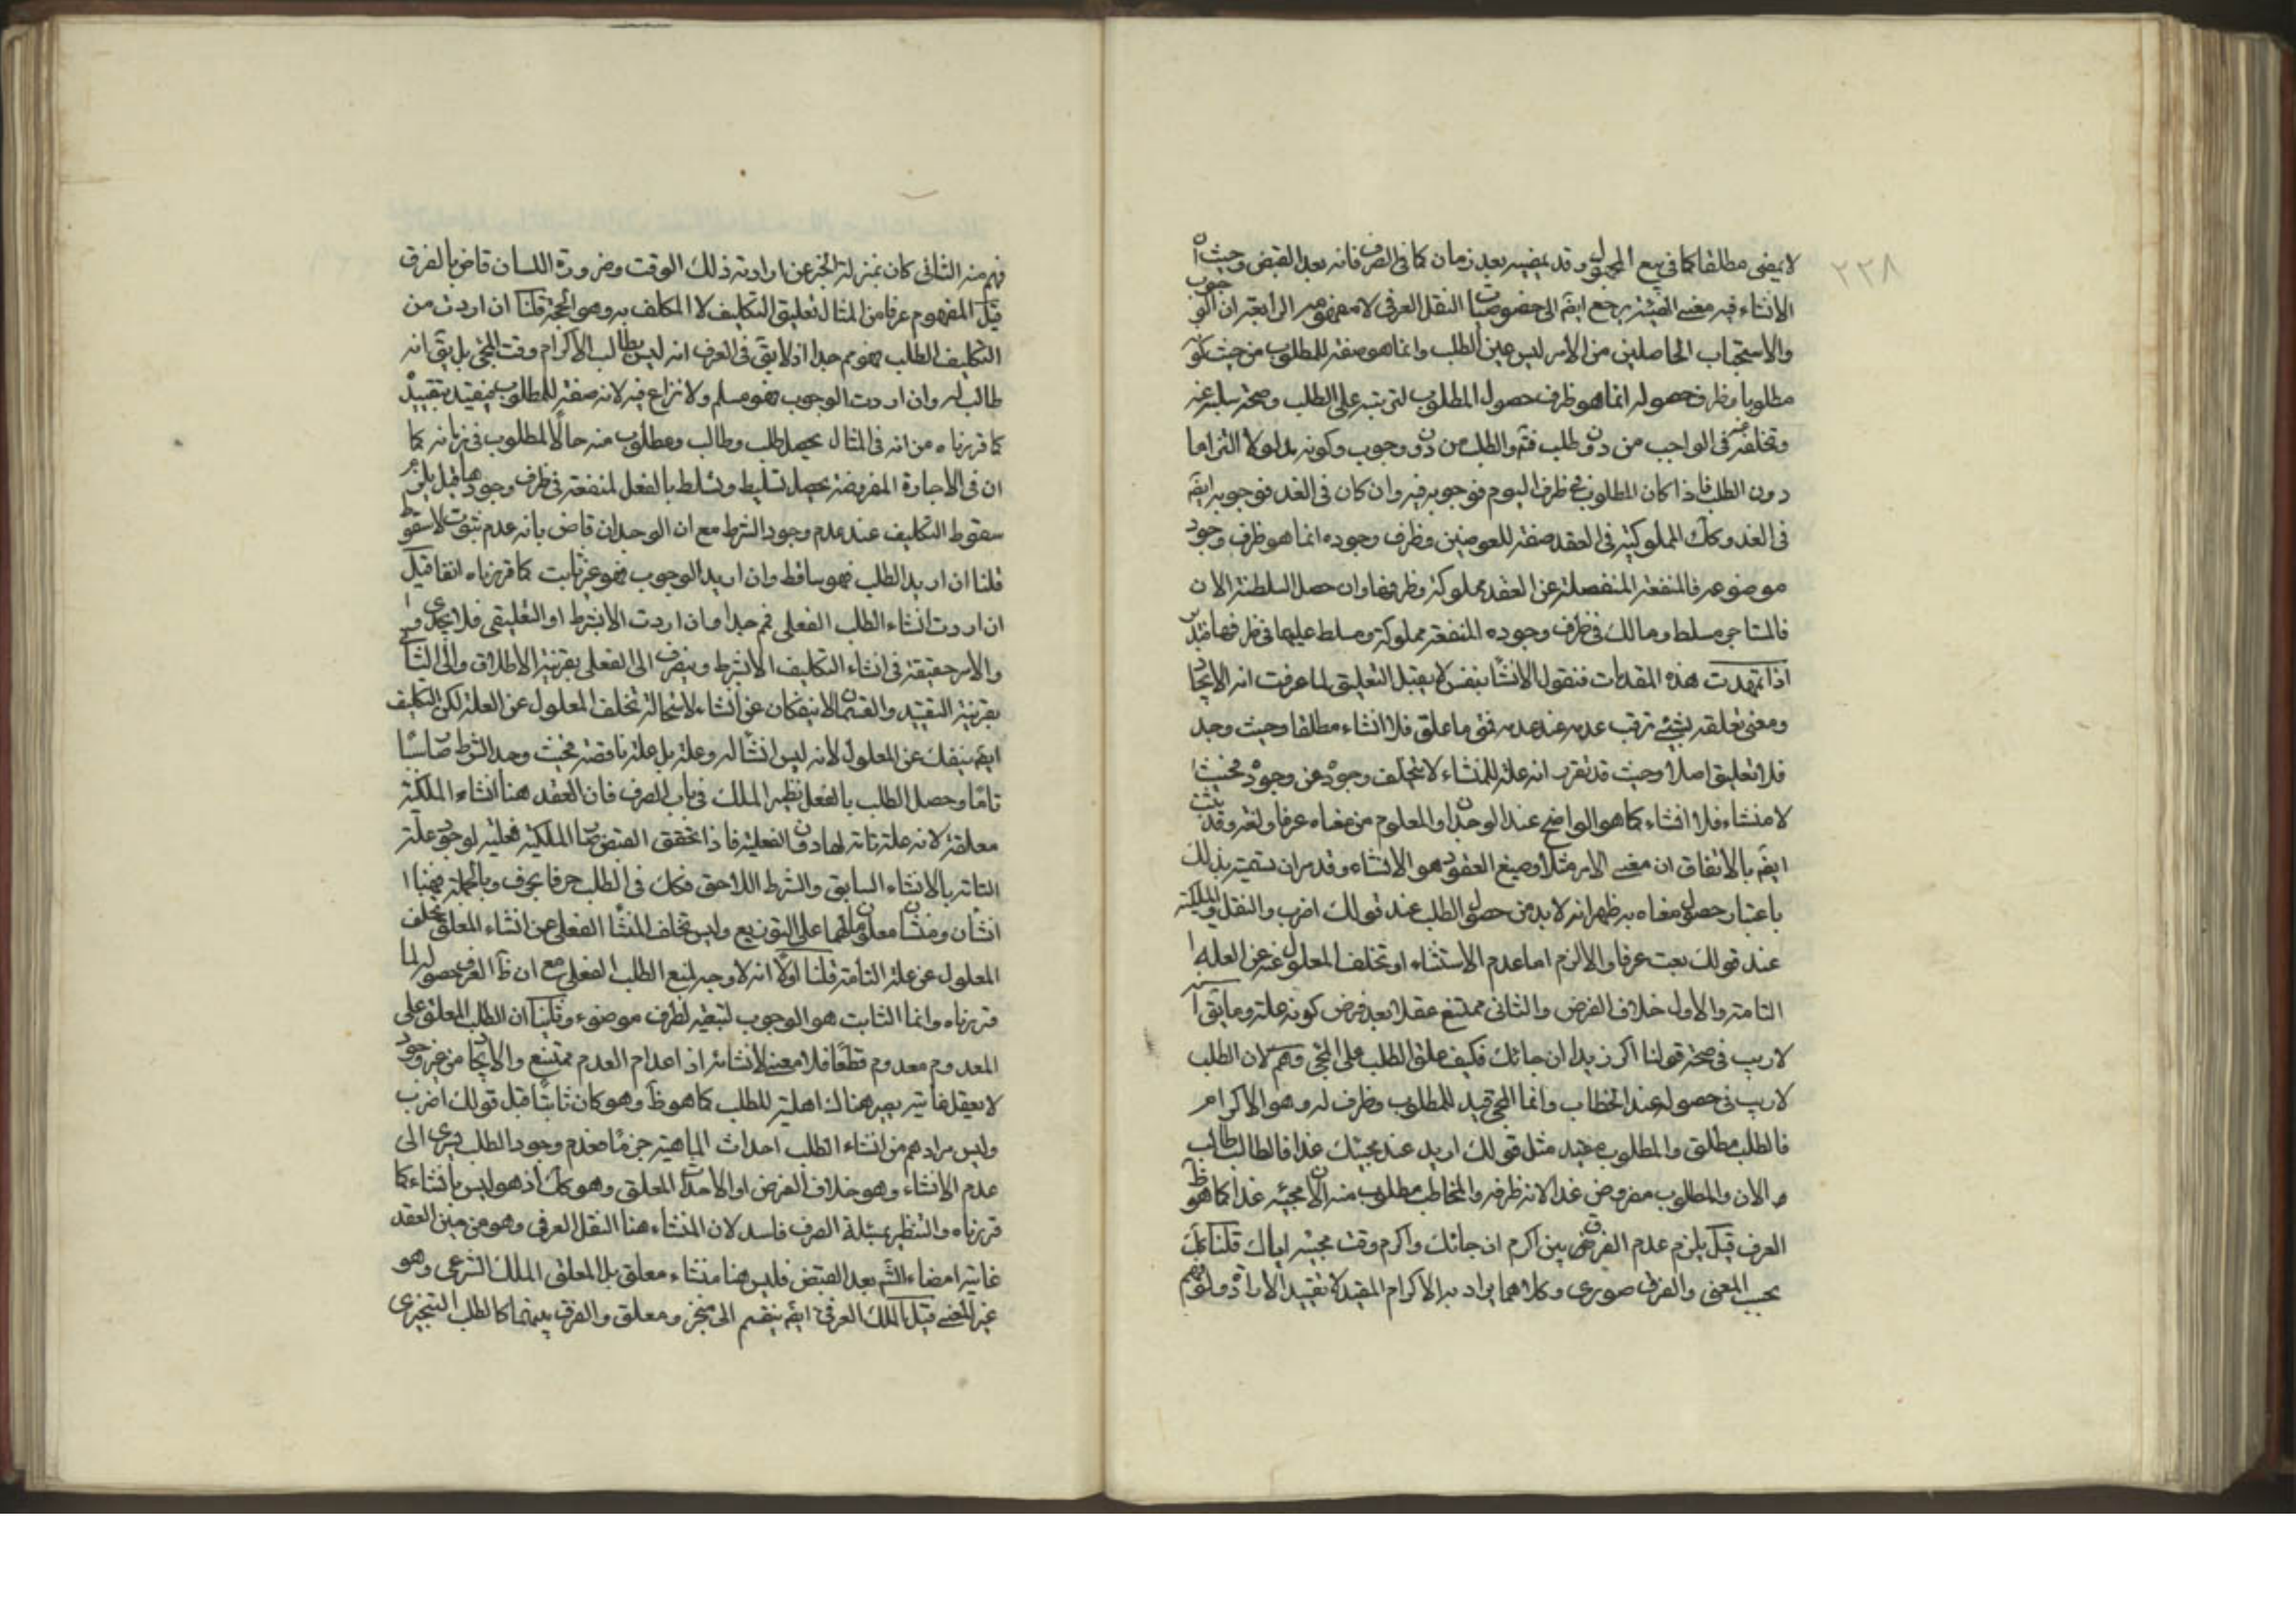 ٢٣٨
لا يمضى مطلقا كما فى بيع المجهول وقد يمضيه بعد زمان كما فى الصرف فانه بعد القبض وحيث ان
الانشاء فيه معنى يرجع ايضا الى خصوصيات النقل العرفى لا مفهومه الرابعة ان الوجوب
والاستحباب الحاصلين من الامر ليس عين الطلب وانما هو صفة للمطلوب من حيث كونه
مطلوبا وظرف حصوله انما هو ظرف حصول المطلوب لترتبه على الطلب وصحة سلبه عنه
وتخلفه فى الواجب من دون طلب فثم والطلب من دون وجوب وكونه مدلولا التزاما
دون الطلب فاذا كان المطلوب فى ظرف اليوم فوجوبه فيه وان كان فى الغد فوجوبه ايضا
فى الغد وكك المملوكية فى العقد صفة للعوضين وظرف وجوده انما هو ظرف وجود
موضوعه فالمنفعة المنفصلة عن العقد مملوكة وظرفها وان حصل السلطنة الان
فالمستاجر مسلط ومالك فى ظرف وجوده المنفعة مملوكة ومسلط عليها فى ظرفها فتدبر
اذا تمهدت هذه المقدمات فنقول الانشاء بنفسه لا يقبل التعليق لما عرفت انه الايجاد
ومعنى تعلقه بشيئ ترتب عدمه عند عدمه فمتى ما علق فلا انشاء مطلقا وحيث وجد
فلا تعليق اصلا وحيث قد تقرر انه علة للمنشاء لا يتخلف وجوده عن وجوده فحيث
لا منشاء فلا انشاء كما هو الواضح عند الوجدان والمعلوم من معناه عرفا ولغة وقد ثبت
ايضا بالاتفاق ان معنى الامر مثلا وصيغ العقود هو الانشاء وقد مر ان تسميته بذلك
باعتبار حصول معناه به ظهر انه لا بد من حصول الطلب عند قولك اضرب والنقل والملكية
عند قولك بعت عرفا والا لزم اما عدم الانشاء او تخلف المعلول عن العلة
التامة والاول خلاف الفرض والثانى ممتنع عقلا بعد فرض كونه علة وما يق
لا ريب فى صحة قولنا اكرم زيدا ان جائك فكيف علق الطلب على المجئ وهم لان الطلب
لا ريب فى حصوله عند الخطاب وانما المجئ قيد للمطلوب وظرف له وهو الاكرام
فالطلب مطلق والمطلوب مقيد مثل قولك اريد عند مجيئك غدا فالطالب طالب
الان والمطلوب مفروض غدا لانه ظرفه والمخاطب مطلوب منه الان مجيئه غدا كما هو ظ
العرف قيل يلزم عدم الفرق بين اكرم ان جائك واكرم وقت مجيئه اياك قلنا كك
بحسب المعنى والفرق صورى وكلاهما يراد به الاكرام المقيد لا تقييد الارادة ولو فهم
فهم منه الثانى كان بمنزلة الخبر عن ارادته ذلك الوقت وضرورة اللسان قاض بالفرق
قيل المفهوم عرفا من المثال تعليق التكليف لا المكلف به وهو الحجة قلنا ان اردت من
التكليف الطلب فهو مم جدا اذ لا يق فى العرف انه ليس بطالب الاكرام وقت المجئ بل يق انه
طالب له وان اردت الوجوب فهو مسلم ولا نزاع فيه لانه صفة للمطلوب فيتقيد بتقييده
كما قررناه من انه فى المثال يحصل طلب وطالب ومطلوب منه حالا لمطلوب فى زمانه كما
ان فى الاجارة المفروضة يحصل تسليط وتسلط بالفعل لمنفعة فى ظرف وجودها قيل يلزم
سقوط التكليف عند عدم وجود الشرط مع ان الوجدان قاض بانه عدم ثبوت لا سقوط
قلنا ان اريد الطلب فهو ساقط وان اريد الوجوب فهو غير ثابت كما قررناه انفا قيل
ان اردت انشاء الطلب الفعلى فمم جدا وان اردت الابشرط او التعليقى فلا يجدى
والامر حقيقة فى انشاء التكليف الابشرط وينصرف الى الفعلى بقرينة الاطلاق والى الثانى
بقرينة التقييد والقسمان لا ينفكان عن انشاء لاستحالة تخلف المعلول عن العلة لكن التكليف
ايضا ينفك عن المعلول لانه ليس انشاء له وعلة بل علة ناقصة فحيث وجد الشرط صار سببا
تاما وحصل الطلب بالفعل نظير الملك فى باب الصرف فان العقد هنا انشاء الملكية
معلقة لانه علة تامة لها دون الفعلية فاذا تحقق القبض صار الملكية فعلية لوجود علته
التامة بالانشاء السابق والشرط اللاحق فكك فى الطلب حرفا بحرف وبالجملة فهنا
انشاءان ومنشاءان معلولان لهما على التوزيع وليس تخلف المنشا الفعلى عن انشاء المعلق تخلف
المعلول عن علته التامة قلنا اولا انه لا وجه لمنع الطلب الفعلى مع ان ظ العرف حصوله لما
قررناه وانما الثابت هو الوجوب لتبعيته لظرف موضوعه وقلنا ان الطلب المعلق على
المعدوم معدوم قطعا فلا معنى لانشائه اذ اعدام العدم ممتنع والايجاد من غير وجود
لا يعقل غايته يصير هناك اهلية للطلب كما هو ظ وهو كان ثابتا قبل قولك اضرب
وليس مرادهم من انشاء الطلب احداث الماهية جزما فعدم وجود الطلب يسرى الى
عدم الانشاء وهو خلاف الفرض او الاحداث المعلق وهو كك اذ هو ليس بانشاء كما
قررناه والتنظير بمسئلة الصرف فاسد لان المنشاء هنا النقل العرفى وهو من حين العقد
غايته امضاء الشرع بعد القبض فليس هنا منشاء معلق بل المعلق الملك الشرعى وهو
غير المنشئ قيل الملك العرفى ايضا ينقسم الى منجز ومعلق والفرق بينهما كالطلب التنجيزى